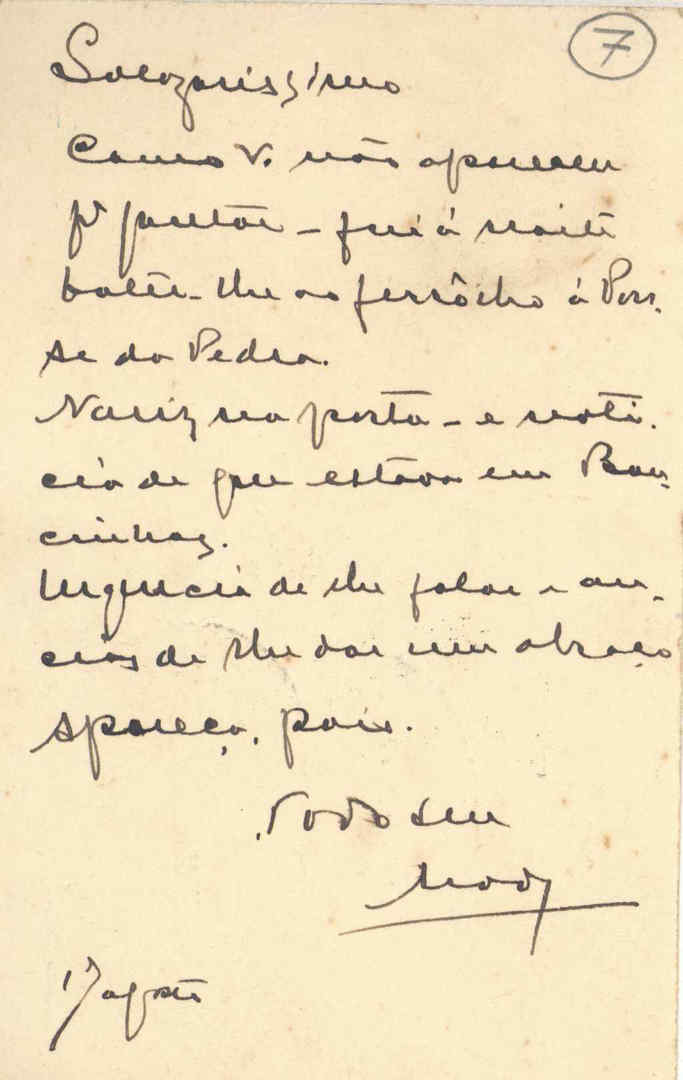 7
Como V. não apareceu
pª jantar – fui á noite
bater-lhe ao ferrôlho á
se da Pedra.
Nariz na porta – e noti-
cia de que estava em Bar-
cinhas.
Urgencia de lhe falar e an-
cias de lhe dar um abraço
Apareça, pois.
Todo seu
17 agosto